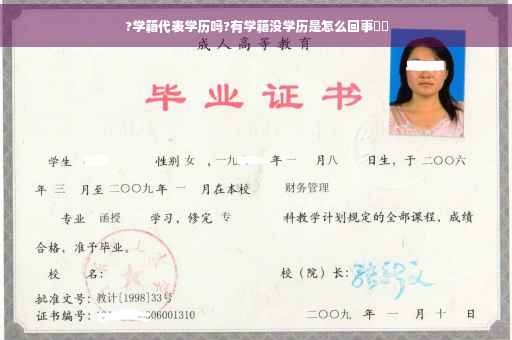 ?学籍代表学历吗?有学籍没学历是怎么回事
成人高等教育
毕业证书
学生 性别 女 ，一九 年 一 月 八 日生，于 二〇〇六
年 三 月至 二〇〇九 年 一 月在本校 财务管理
专业 函授 学习，修完 专 科教学计划规定的全部课程，成绩
合格，准予毕业。
校 名： 校（院）长：
批准文号：教计[1998]33号
证书编号： 06001310 二〇〇九 年 一 月 十 日